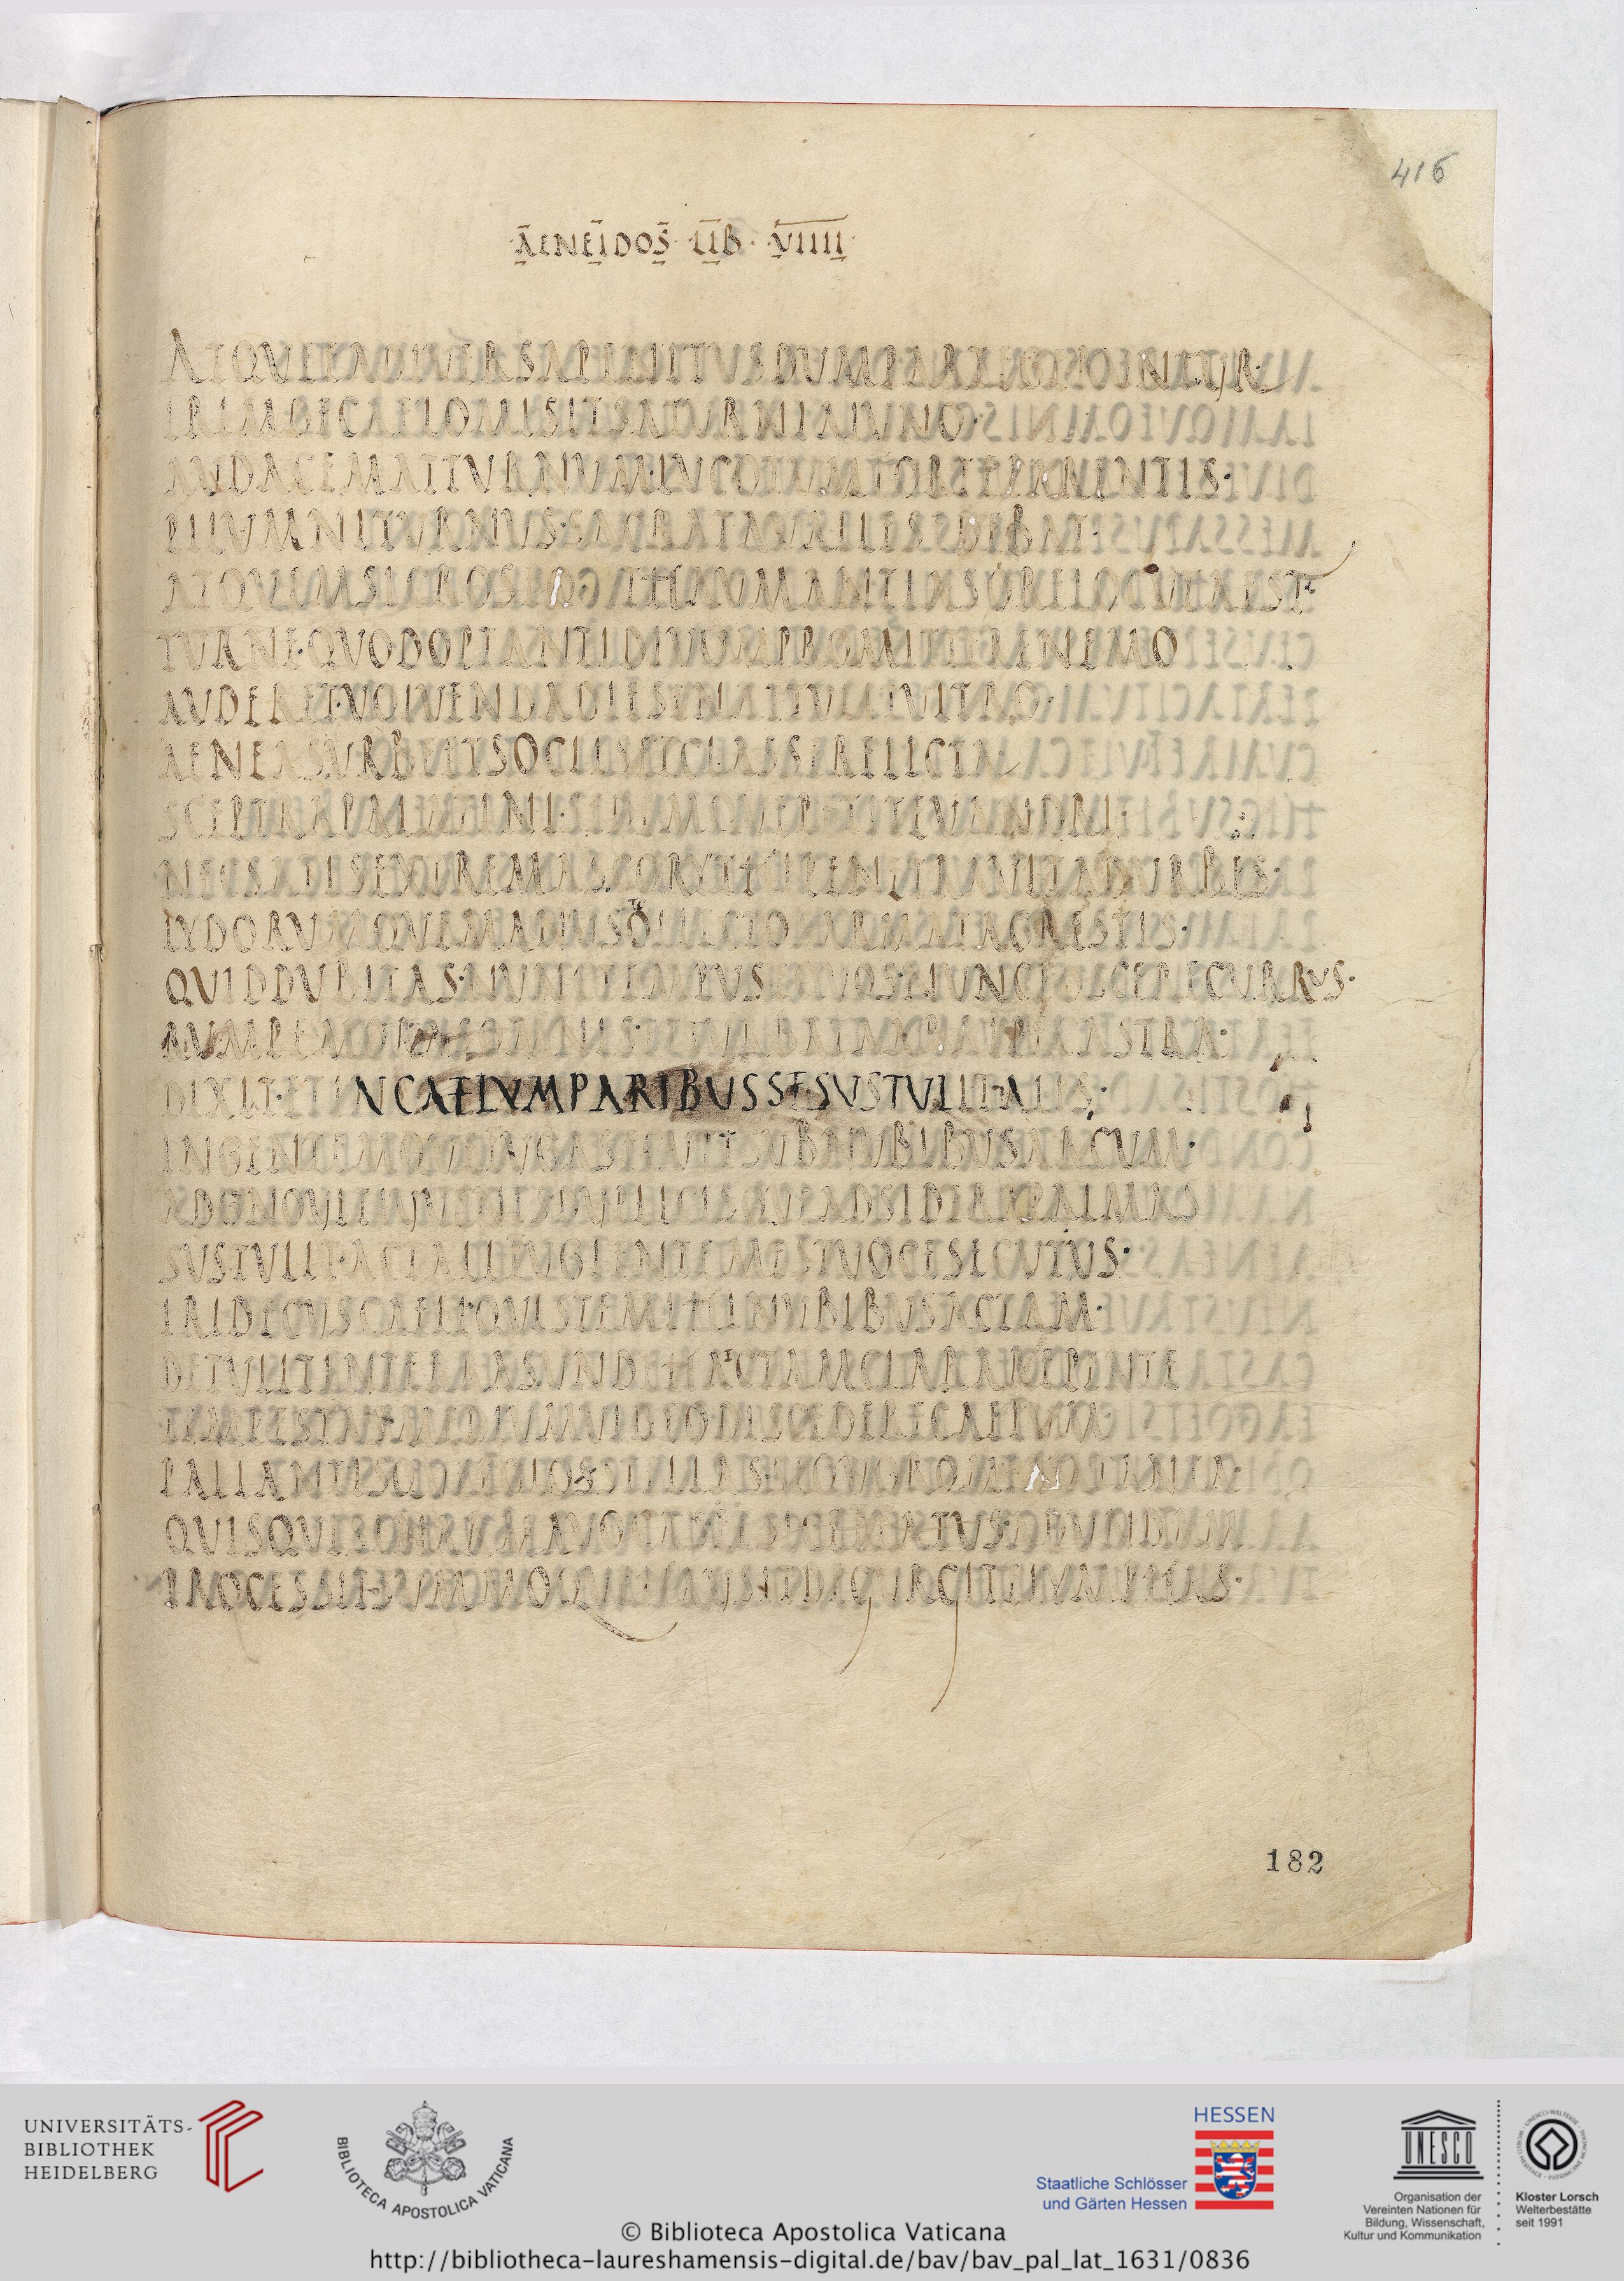 AENEIDOS LIB VIIII
416
ATQVE EA DIVERSA PENITVS DVM PARTE GERVNTVR
IRIM DE CAELO MISIT SATVRNIA IVNO·
AVDACEM AT TVRNVM·LVCO TVM FORTE PARENTIS·
PILVMNI TVRNVS·SACRATA VALLE SEDEBAT·
AT QVEM SIC ROSEO THAVMANTIAS ORE LOCVTA EST·
TVRNE·QVOD OPTANTI DIVOM PROMITTERE NEMO
AVDERET·VOLVENDA DIES EN ATTVLIT VLTRO·
AENEAS VRBE ET SOCIIS ET CLASSE RELICTA
SCEPTRA PALATINI·SEDEMQVE PETIT EVANDRI·
NEC SATIS EXTREMAS CORYTHI PENETRAVIT AD VRBES·
LYDORVMQVE MANVS COLLECTOS ARMAT AGRESTIS·
QVID DVBITAS·NVNC TEMPVS EQVOS·NVNC POSCERE CVRRVS·
RVMPE MORAS OMNIS·ET TVRBATA ARRIPE CASTRA·
DIXIT·ET IN CAELVM PARIBVS SE SVSTVLIT ALIS·
INGENTEMQVE FVGA SECVIT SVB NVBIBVS ARCVM·
ADGNOVIT IVVENIS DVPLICISQVE AD SIDERA PALMAS
SVSTVLIT·AC TALI FVGIENTEM EST VOCE SECVTVS·
IRI DECVS CAELI·QVIS TE MIHI NVBIBVS ACTAM·
DETVLIT IN TERRAS VNDE HAEC TAM CLARA REPENTE
TEMPESTAS MEDIVM VIDEO DISCEDERE CAELVM·
PALLANTISQVE POLO STELLAS·SEQVOR OMINA TANTA·
QVISQVIS IN ARMA VOCAS ET SIC EFFATVS AD VNDAM
PROCESSIT·SVMMOQVE HAVSIT DE GVRGITE LYMPHAS·
182
UNIVERSITÄTS-
BIBLIOTHEK
HEIDELBERG
BIBLIOTECA APOSTOLICA VATICANA
HESSEN
Staatliche Schlösser
und Gärten Hessen
UNESCO
Organisation der
Vereinten Nationen für
Bildung, Wissenschaft,
Kultur und Kommunikation
Kloster Lorsch
Welterbestätte
seit 1991
© Biblioteca Apostolica Vaticana
http://bibliotheca-laureshamensis-digital.de/bav/bav_pal_lat_1631/0836